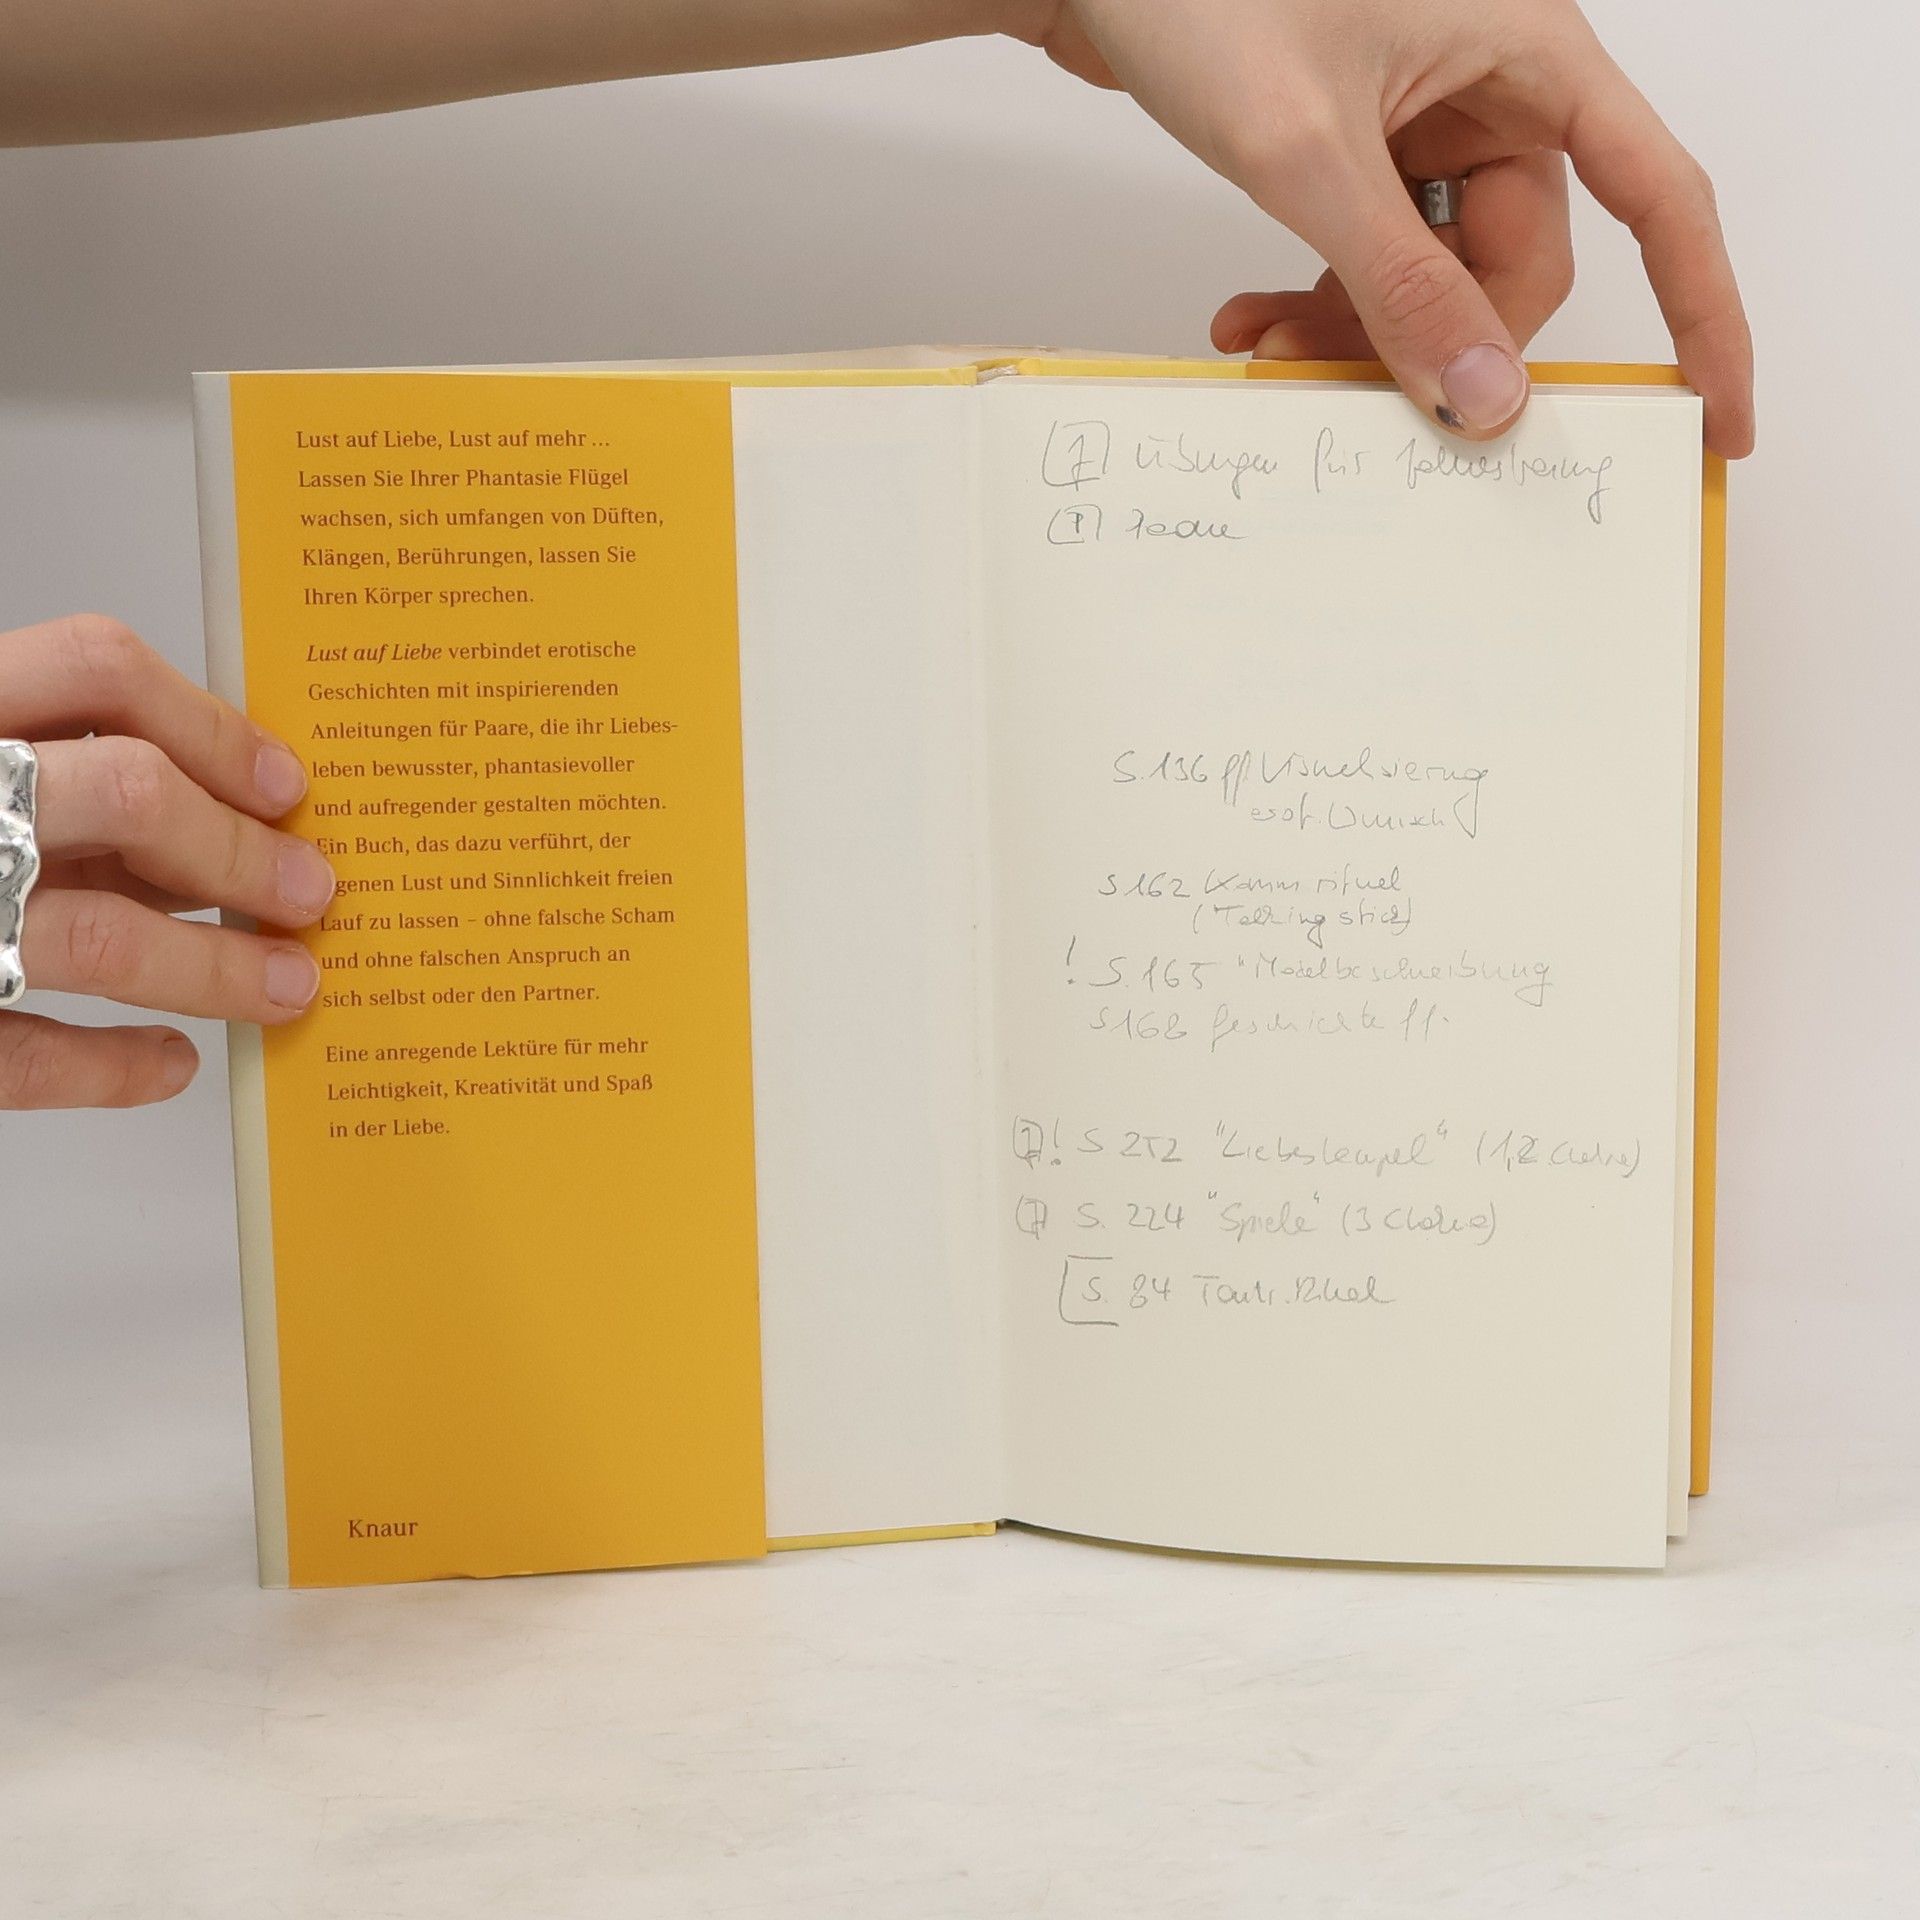 Lust auf Liebe, Lust auf mehr ...
Lassen Sie Ihrer Phantasie Flügel
wachsen, sich umfangen von Düften,
Klängen, Berührungen, lassen Sie
Ihren Körper sprechen.
Lust auf Liebe verbindet erotische
Geschichten mit inspirierenden
Anleitungen für Paare, die ihr Liebes-
leben bewusster, phantasievoller
und aufregender gestalten möchten.
Ein Buch, das dazu verführt, der
genen Lust und Sinnlichkeit freien
Lauf zu lassen – ohne falsche Scham
und ohne falschen Anspruch an
sich selbst oder den Partner.
Eine anregende Lektüre für mehr
Leichtigkeit, Kreativität und Spaß
in der Liebe.
Knaur
Übungen für
S. 136 ff Visualisierung
erot. Wunsch
S 162 Kamm rituel
(Talking stick)
! S. 165 "Modelbeschreibung
S 168 Geschichte ff.
! S 212 "Liebestempel"
S. 224 "Spiele"
S. 84 Tantr. Ritual